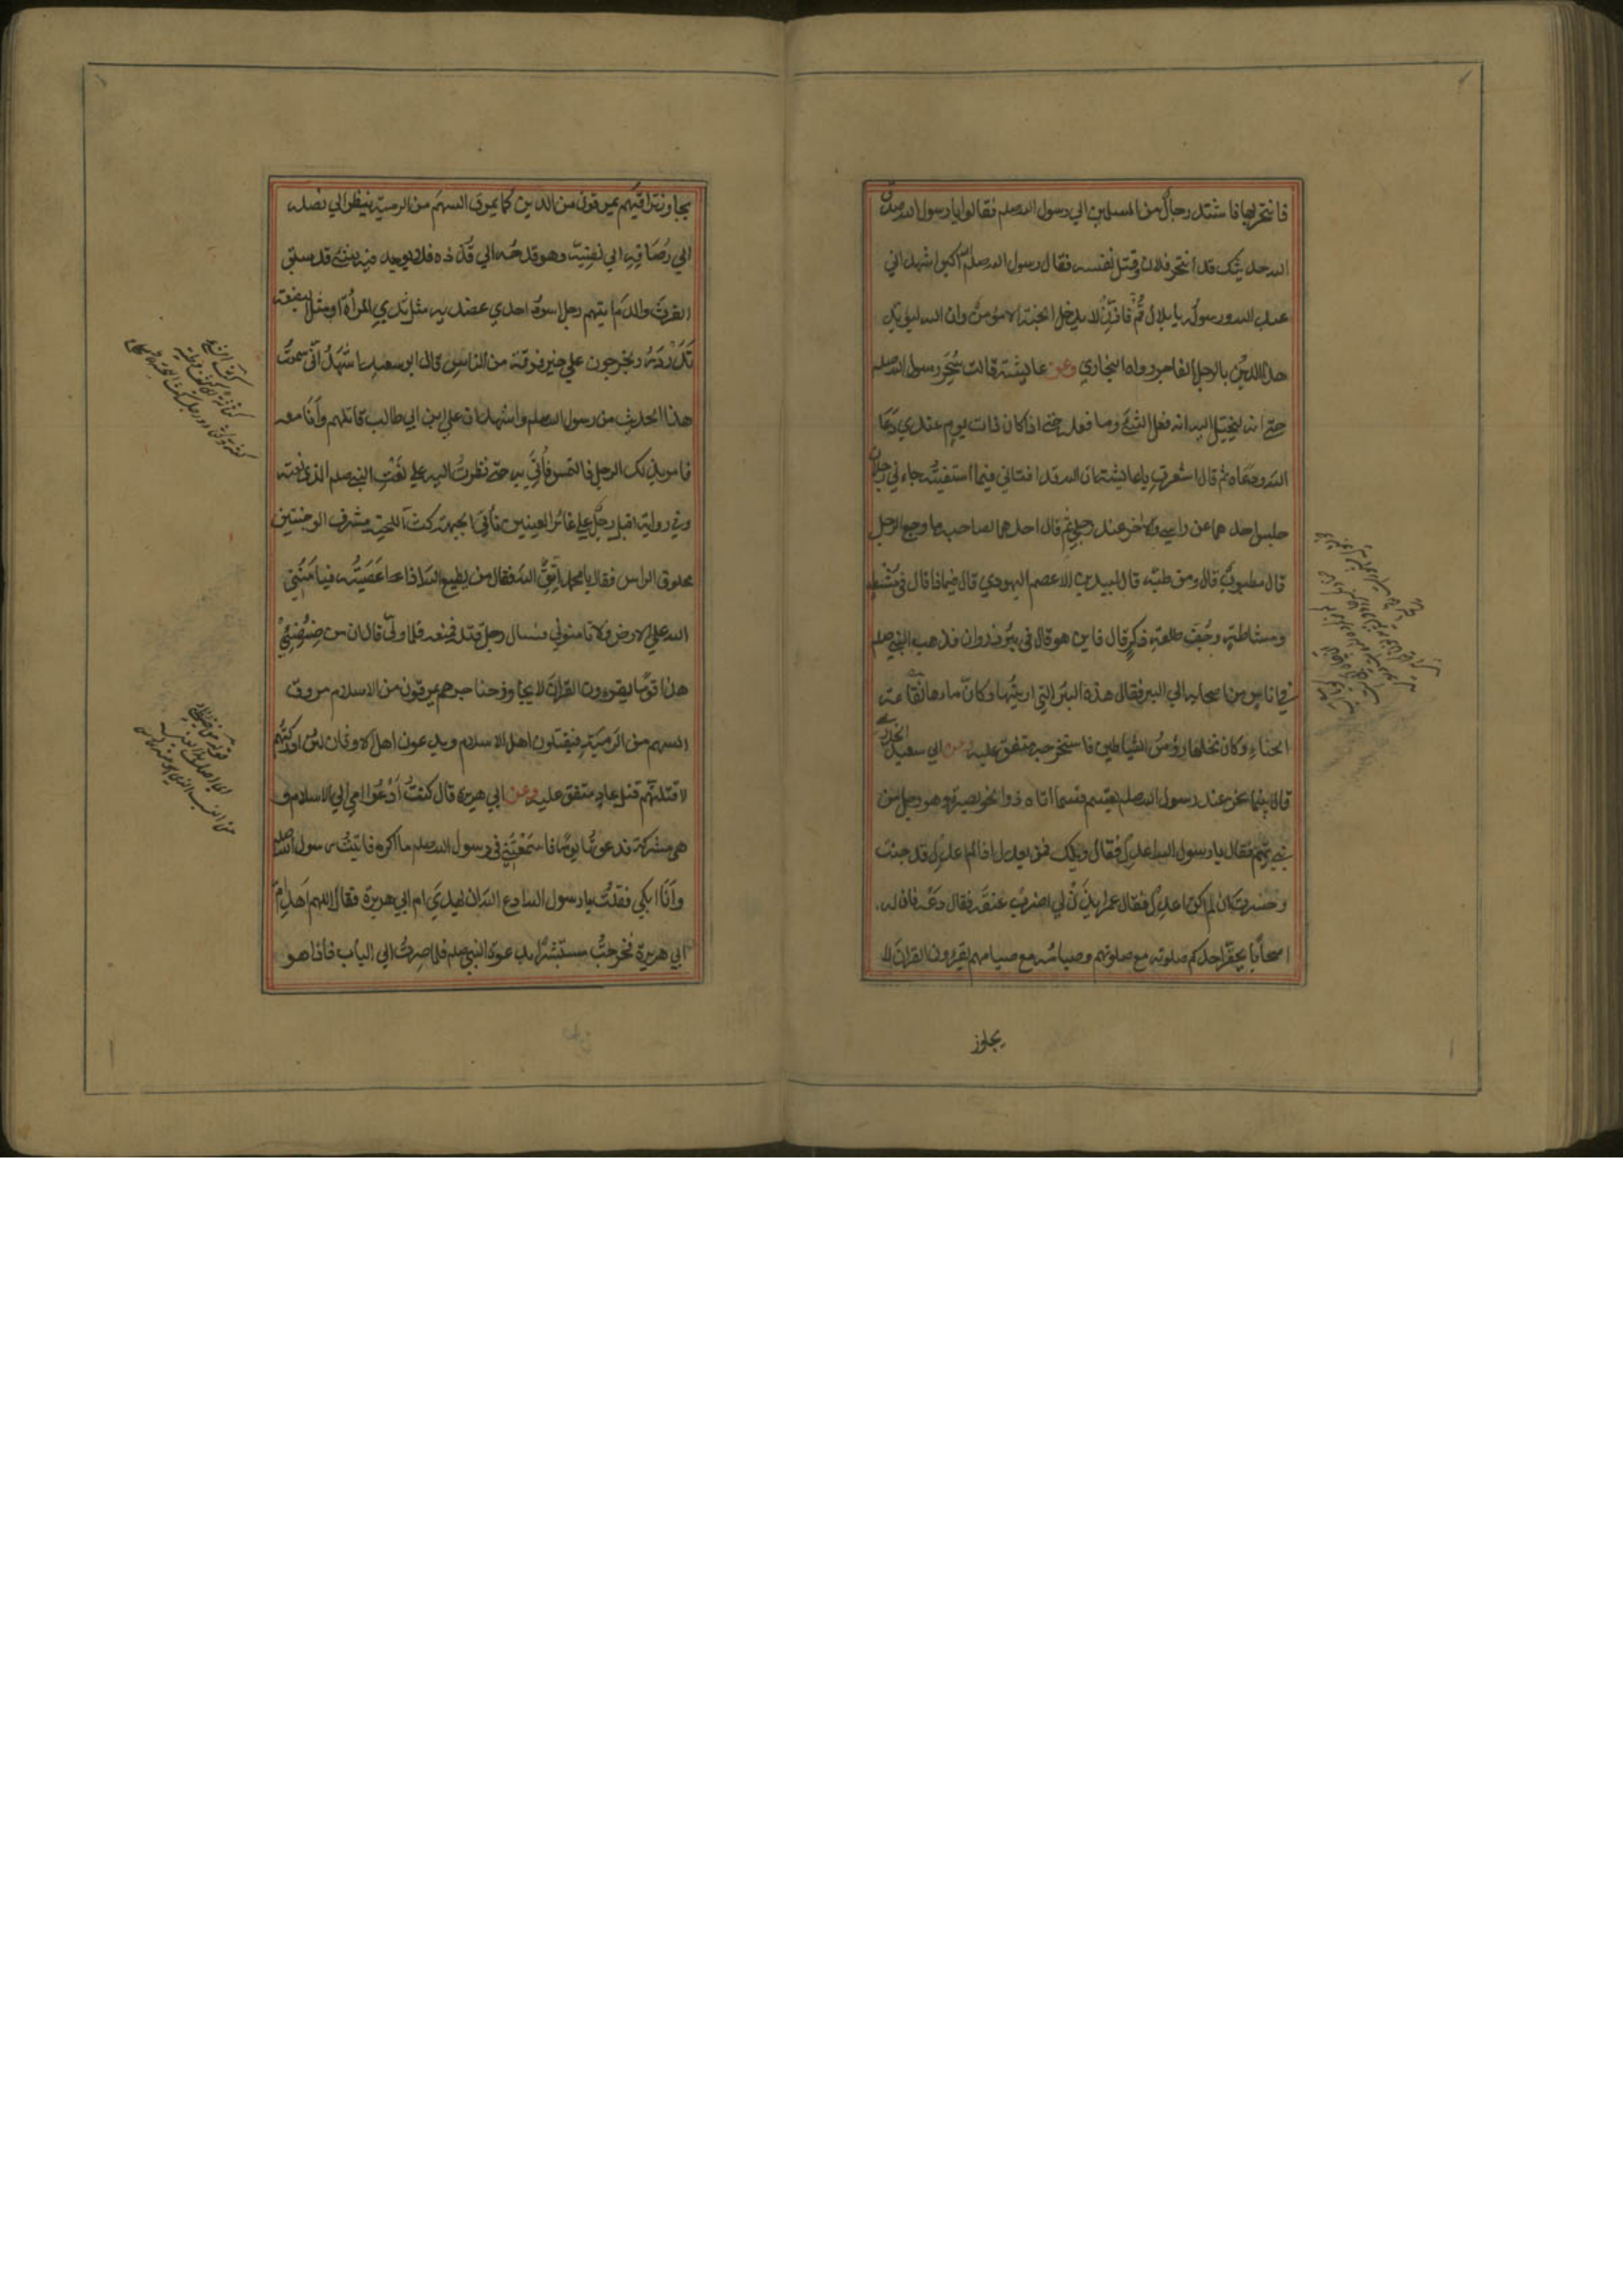 فانتحر بها فاشتد رجال من المسلمين الي رسول الله صلم فقالوا يا رسول الله صدق
الله حديثك قد انتحر فلان وقتل نفسه فقال رسول الله صلم الله اكبر اشهد اني
عبد الله ورسوله يا بلال قُم فاَذِّن لا يدخل الجنة الا مؤمن وان الله ليؤيد
هذا الدين بالرجل الفاجر رواه البخاري وعن عايشة قالت سُحِرَ رسول الله صلم
حتي انه ليخيّل اليه انه فعل الشئ وما فعله حتي اذا كان ذات يوم عندي دَعَا
الله ودعاه ثم قال اشعرتِ يا عايشة ان الله قد افتاني فيما استفتيته جاءني رجلان
جلس احدهما عند راسي والاخر عند رجلي ثم قال احدهما لصاحبه ما وجع الرجل
قال مطبوب قال ومن طبّه قال لبيد بن الاعصم اليهودي قال فيماذا قال في مُشط
ومشاطة وجُفّ طلعةِ ذكرٍ قال فاين هو قال في بئر ذروان فذهب النبي صلم
في اناس من اصحابه الي البير فقال هذه البئر التي اريتها وكانّ ماءها نُقاعة
الحناءِ وكان نخلها رؤسُ الشياطين فاستخرجه متفق عليه وعن ابي سعيد الخدري
قال بينما نحن عند رسول الله صلم يقسم قسما اتاه ذو الخويصرة وهو رجل من
بني تميم فقال يا رسول الله اعدل فقال ويلك فمن يعدل اذا لم اعدل قد خبت
وخسرت ان لم اكن اعدل فقال عمر ايذن لي اضرب عنقه فقال دَعْه فان له
اصحاباً يحقر احدكم صلوته مع صلوتهم وصيامه مع صيامهم يقرءون القرانَ لا
يجاوز
يجاوز تراقيهم يمرقون من الدين كما يمرق السهم من الرمية ينظر الي نصله
الي رُصَافِه الي نَضِيّه وهو قدحه الي قُذذه فلا يوجد فيه شئ قد سبق
الفرثَ والدّم ايتهم رجل اسودُ احدي عضديه مثل ثدي المراة او مثل البضعة
تَدَرْدَرُ ويخرجون علي خير فرقة من الناس قال ابو سعيد اشهدُ اَنّي سمعتُ
هذا الحديث من رسول الله صلم واشهد ان علي ابن ابي طالب قاتلهم وانَا معه
فامر بذلك الرجل فالتمس فاُتي به حتي نظرتُ اليه علي نَعْتِ النبي صلم الذي نعته
وفي رواية اقبل رجل غائر العينين ناتئ الجبهة كث اللحية مشرف الوجنتين
محلوق الراس فقال يا محمد اتق الله فقال من يطيع الله اذا عصَيتُه فيامَنُني
الله علي اهل الارض ولا تامنوني فسال رجل قتله فمنعه فلما ولّي قال ان من ضئضئ
هذا قوما يقرءون القرانَ لا يجاوز حناجرهم يمرقون من الاسلام مروق
السهم من الرمية فيقتلون اهل الاسلام ويدعون اهل الاوثان لئن ادركتهم
لاقتلنّهم قتل عادٍ متفق عليه وعن ابي هريرة قال كنتُ اَدْعُوا امي الي الاسلام و
هي مشركة فدعوتُها يومًا فاسْمَعَتْني في رسول الله صلم ما اكره فاتيتُ رسول الله صلم
وأَنَا ابكي فقلتُ يا رسول الله ادع الله ان يهديَ ام ابي هريرة فقال اللهم اهدِ امّ
ابي هريرة فخرجتُ مستبشرًا بدعوة النبي صلم فلما صرتُ الي الباب فاذا هو